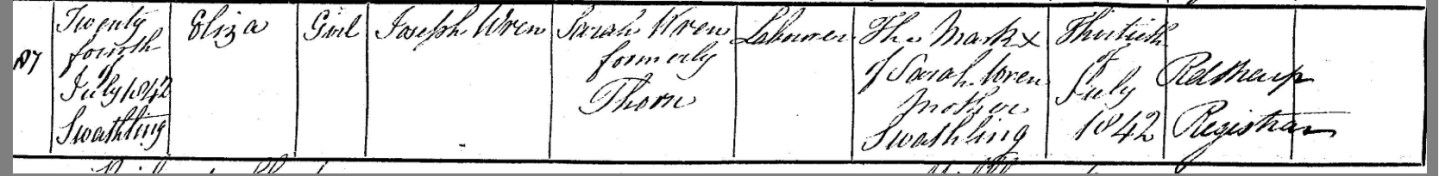 Twenty
fourth
of
July 1842
Swathling
Eliza
Girl
Joseph Wren
Sarah Wren
formerly
Thorn
Labourer
The Mark x
of Sarah Wren
Mother
Swathling
Thirtieth
of
July
1842
Registrar